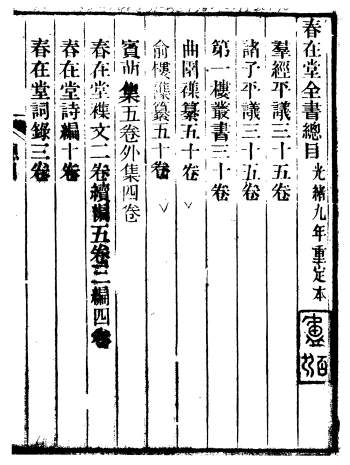 春在堂全書總目 光緒九年重定本
羣經平議三十五卷
諸子平議三十五卷
第一樓叢書三十卷
曲園襍纂五十卷
俞樓襍纂五十卷
賓萌集五卷外集四卷
春在堂襍文二卷續編五卷三編四卷
春在堂詩編十卷
春在堂詞錄三卷